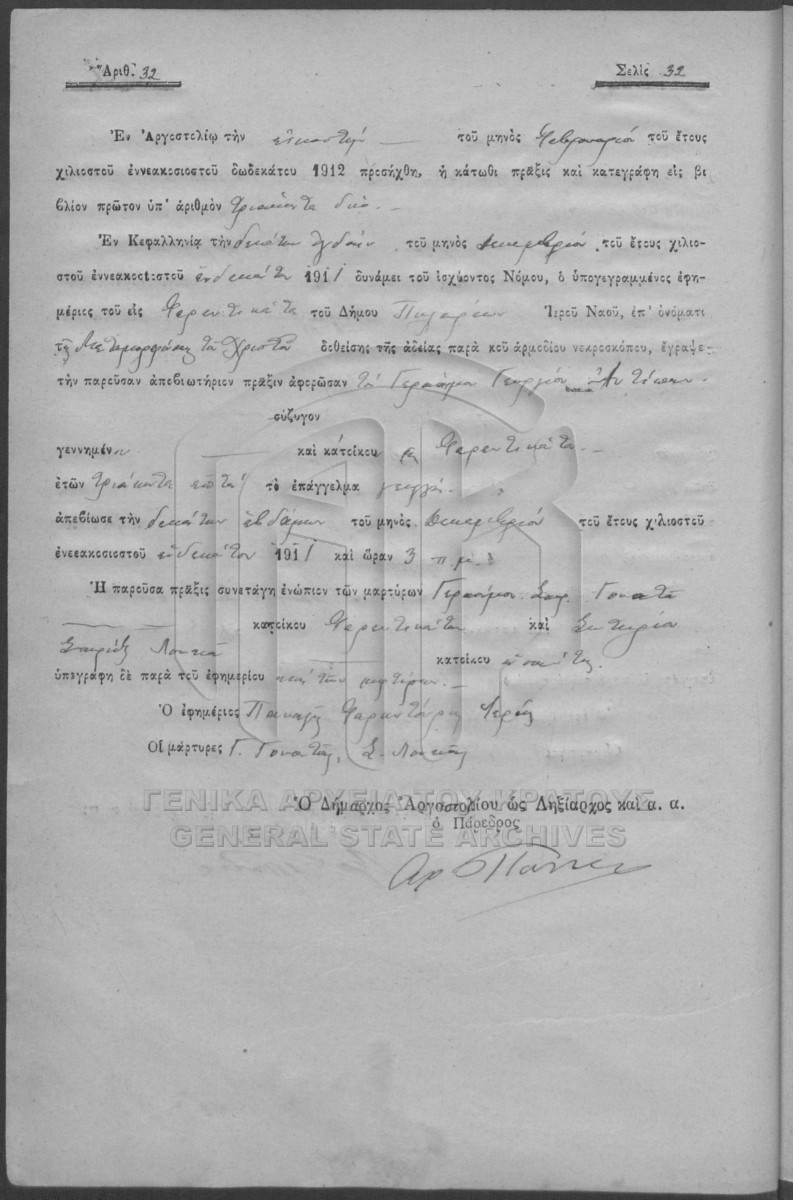 Ἀριθ. 32
Σελὶς 32
Ἐν Ἀργοστολίῳ τὴν εἰκοστήν τοῦ μηνὸς Φεβρουαρίου τοῦ ἔτους
χιλιοστοῦ ἐννεακοσιοστοῦ δωδεκάτου 1912 προσήχθη, ἡ κάτωθι πρᾶξις καὶ κατεγράφη εἰς βι
βλίον πρῶτον ὑπ' ἀριθμὸν τριάκοντα δύο.
Ἐν Κεφαλληνίᾳ τὴν δεκάτην ὀγδόην τοῦ μηνὸς Δεκεμβρίου τοῦ ἔτους χιλιο-
στοῦ ἐννεακοσιοστοῦ ἑνδεκάτου 1911 δυνάμει τοῦ ἰσχύοντος Νόμου, ὁ ὑπογεγραμμένος ἐφη-
μέριος τοῦ εἰς Φαρακλάτα τοῦ Δήμου Ἱεροῦ Ναοῦ, ἐπ' ὀνόματι
τῆς Μεταμορφώσεως τοῦ Χριστοῦ δοθείσης τῆς ἀδείας παρὰ κοῦ ἁρμοδίου νεκροσκόπου, ἔγραψε
τὴν παροῦσαν ἀπεβιωτήριον πρᾶξιν ἀφορῶσαν τὸν Γεράσιμον Γεωργίου
σύζυγον
γεννημέν καὶ κάτοικου
ἐτῶν τριάκοντα ἑπτά τὸ ἐπάγγελμα γεωργ.
ἀπεβίωσε τὴν δεκάτην ἑβδόμην τοῦ μηνὸς Δεκεμβρίου τοῦ ἔτους χιλιοστοῦ
ἐνεεακοσιοστοῦ ἑνδεκάτου 1911 καὶ ὥραν 3 π.μ.
Ἡ παροῦσα πρᾶξις συνετάγη ἐνώπιον τῶν μαρτύρων Γερασίμου Σπυρ. Γονατᾶ
κατοίκου καὶ Σωτηρίου
Λουκᾶ κατοίκου
ὑπεγράφη δὲ παρὰ τοῦ ἐφημερίου καὶ τῶν μαρτύρων.
Ὁ ἐφημέριος Παναγῆς Ἱερεύς
Οἱ μάρτυρες Γ. Γονατᾶς, Σ. Λουκᾶς
Ὁ Δήμαρχος Ἀργοστολίου ὡς Ληξίαρχος καὶ α. α.
ὁ Πάρεδρος
ΓΕΝΙΚΑ ΑΡΧΕΙΑ ΤΟΥ ΚΡΑΤΟΥΣ
GENERAL STATE ARCHIVES